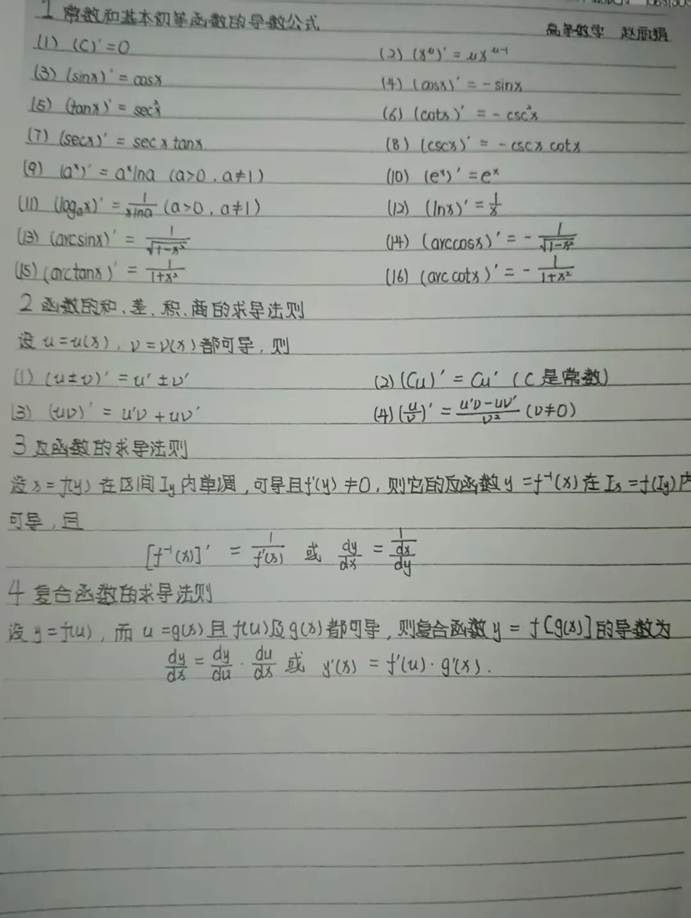 1 常数和基本初等函数的导数公式
高等数学 赵丽娟
(1) (C)'=0 (2) (x^u)' = ux^{u-1}
(3) (sinx)' = cosx (4) (cosx)' = -sinx
(5) (tanx)' = sec²x (6) (cotx)' = -csc²x
(7) (secx)' = secx tanx (8) (cscx)' = -cscx cotx
(9) (a^x)' = a^x lna (a>0, a≠1) (10) (e^x)' = e^x
(11) (log_a x)' = 1/(xlna) (a>0, a≠1) (12) (lnx)' = 1/x
(13) (arcsinx)' = 1/√(1-x²) (14) (arccosx)' = -1/√(1-x²)
(15) (arctanx)' = 1/(1+x²) (16) (arccotx)' = -1/(1+x²)
2 函数的和、差、积、商的求导法则
设 u=u(x), v=v(x) 都可导, 则
(1) (u±v)' = u'±v' (2) (Cu)' = Cu' (C是常数)
(3) (uv)' = u'v + uv' (4) (u/v)' = (u'v-uv')/v² (v≠0)
3 反函数的求导法则
设 x=f(y) 在区间 I_y 内单调, 可导且 f'(y) ≠0, 则它的反函数 y=f⁻¹(x) 在 I_x=f(I_y) 内
可导, 且
[f⁻¹(x)]' = 1/f'(x) 或 dy/dx = 1/(dx/dy)
4 复合函数的求导法则
设 y=f(u), 而 u=g(x) 且 f(u) 及 g(x) 都可导, 则复合函数 y = f[g(x)] 的导数为
dy/dx = dy/du · du/dx 或 y'(x) = f'(u)·g'(x).